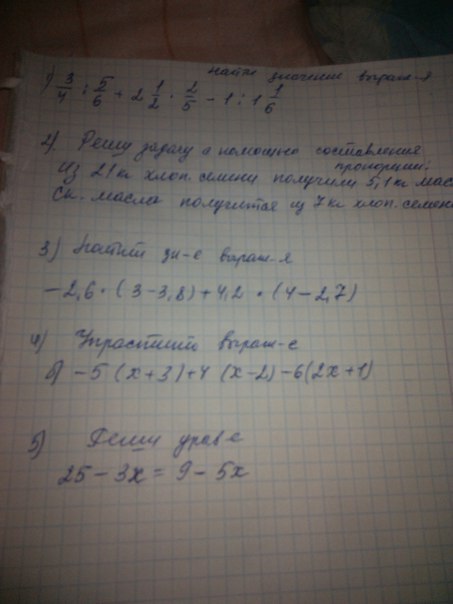 1) Найти значение выраж-я
3/4 : 5/6 + 2 1/2 · 2/5 - 1 : 1 1/6
2). Решу задачу с помощью составления
пропорции.
Из 21 кг хлоп. семени получили 5,1 кг мас
Ск. масла получится из 7 кг хлоп. семени
3) Найти зн-е выраж-я
-2,6 · (3-3,8)+4,2 · (4-2,7)
4) Упростите выраж-е
б) -5 (x+3)+4 (x-2)-6(2x+1)
5) Реши урав-е
25 - 3x = 9 - 5x